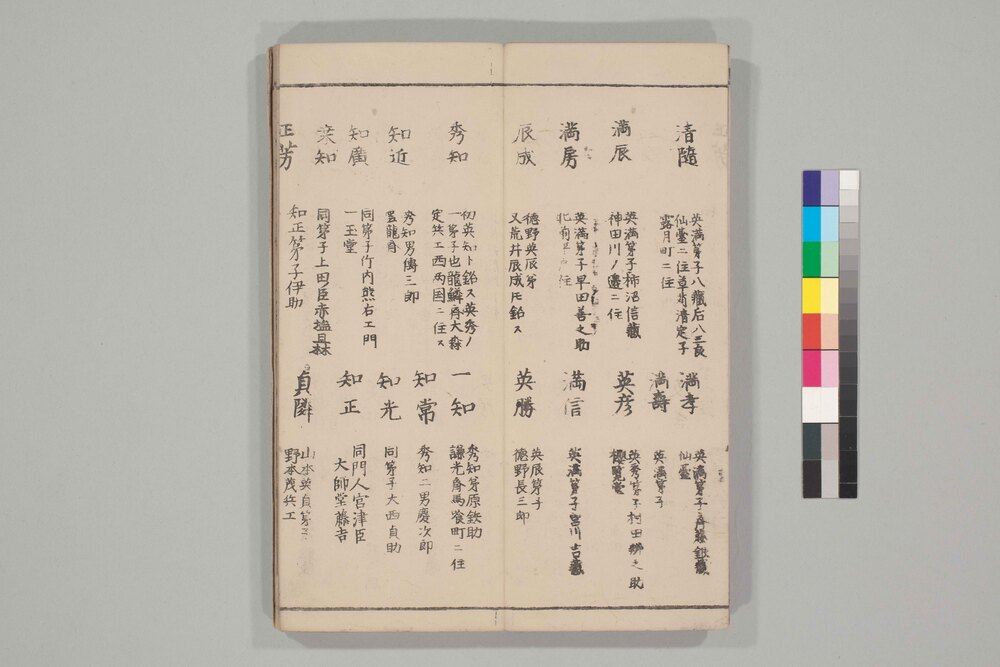 清隨
英満弟子八藏后八三良
仙臺ニ住
露月町ニ住
満辰
英満弟子柿沼信藏
神田川ノ邊ニ住
満房
英満弟子早田善之助
辰成
徳野英辰弟
又荒井辰成𪜈銘ス
秀知
初英知ト銘ス英秀ノ
一弟子也龍鱗斉大森
定共エ西両国ニ住ス
知近
秀知男傳三郎
龍斉
知廣
同弟子竹内熊右エ門
一玉堂
知
同弟子上田臣赤塩
正芳
知正弟子伊助
満孝
英満弟子斉藤銀藏
仙臺
満壽
英満弟子
英彦
英秀弟子村田
満信
英満弟子宮川吉藏
英勝
英辰弟子
徳野長三郎
一知
秀知弟原鉄助
謙光斉馬喰町ニ住
知常
秀知二男慶次郎
知光
同弟子大西貞助
知正
同門人宮津臣
大師堂藤吉
貞隣
山本英貞弟子
野本茂兵エ